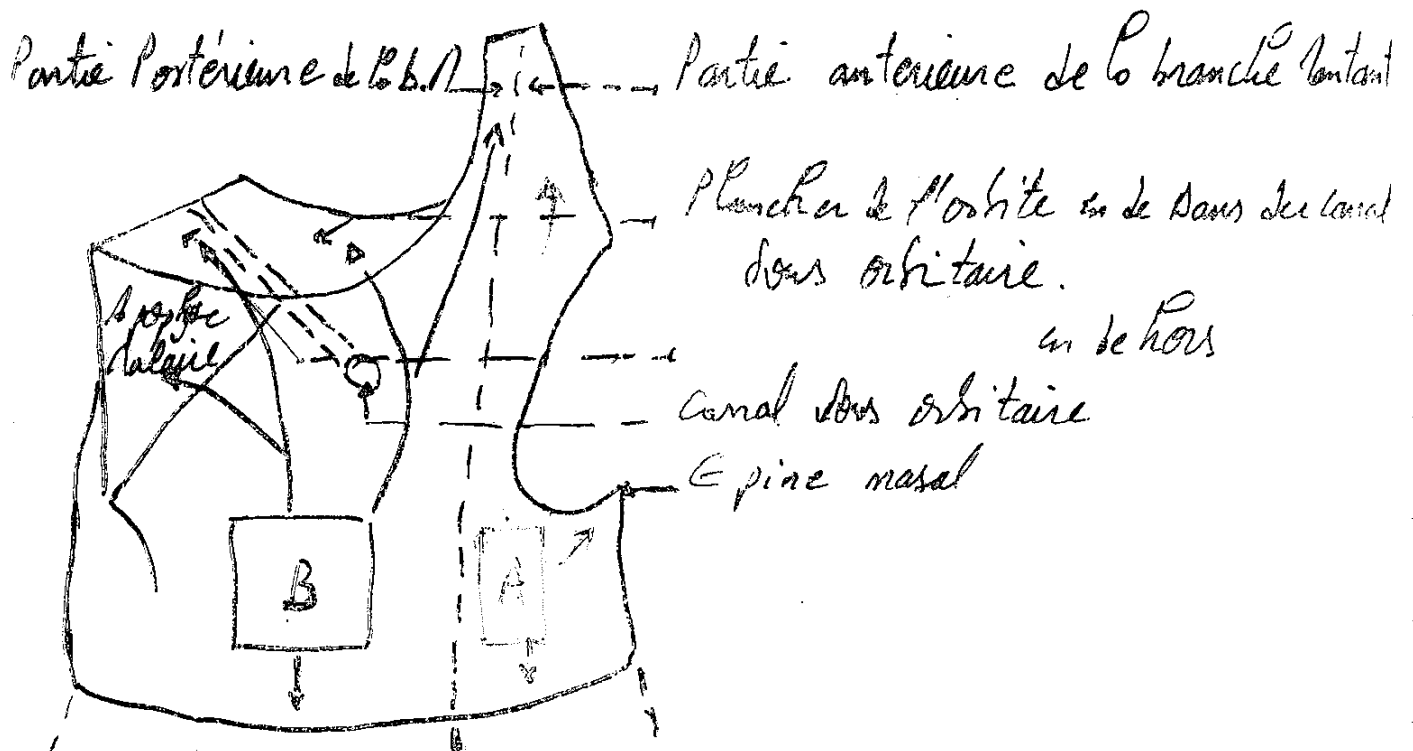 Partie Postérieure de la b.M
Partie anterieure de la branche Montant
Plancher de l'orbite en de Dans du canal
sous orbitaire.
en de hors
Apophyse
Malaire
Canal sous orbitaire
Epine nasal
B
A